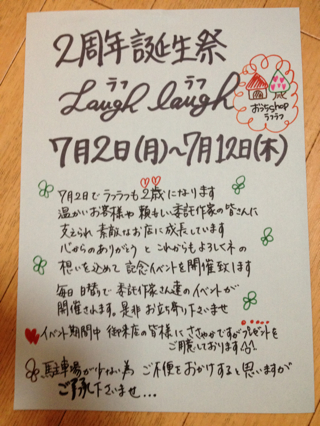 2周年誕生祭
ラフ ラフ
Laugh laugh
おうちshop
ラフラフ
7月2日(月)~7月12日(木)
7月2日でラフラフも2歳になります
温かいお客様や頼もしい委託作家の皆さんに
支えられ素敵なお店に成長しています
心からのありがとうとこれからもよろしくネの
想いを込めて記念イベントを開催致します
毎日日替りで委託作家さん達のイベントが
開催されます。是非お立ち寄り下さいませ
イベント期間中御来店の皆様にささやかですがプレゼントを
ご用意しております
駐車場が少ない為ご不便をおかけすると思いますが
ご了承下さいませ...